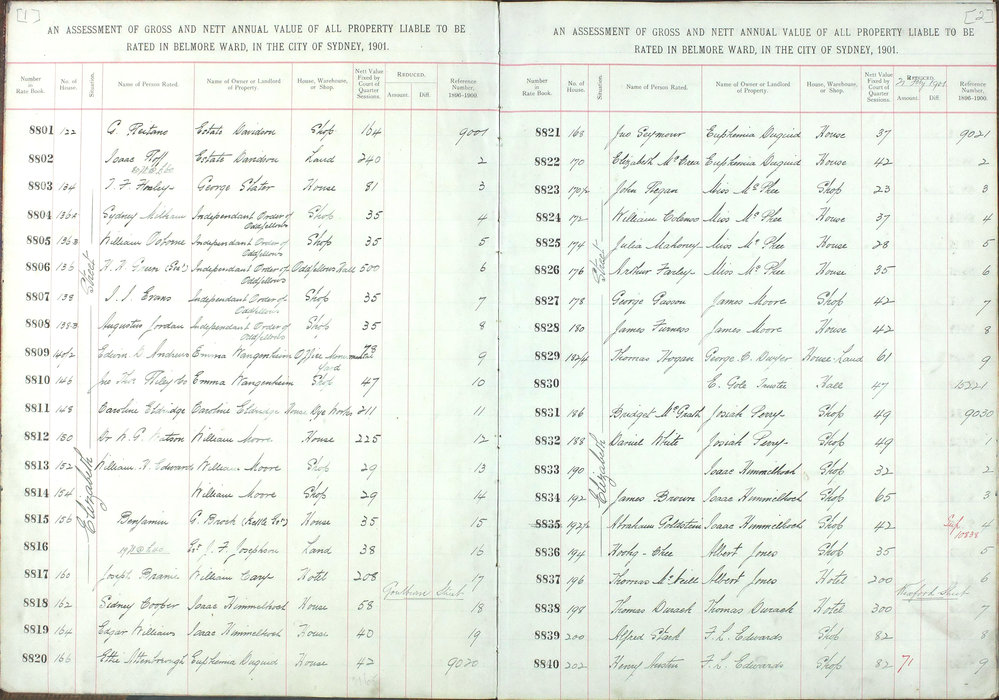 [1]
AN ASSESSMENT OF GROSS AND NETT ANNUAL VALUE OF ALL PROPERTY LIABLE TO BE
RATED IN BELMORE WARD, IN THE CITY OF SYDNEY, 1901.
Number in Rate Book. No. of House. Situation. Name of Person Rated. Name of Owner or Landlord of Property. House, Warehouse, or Shop. Nett Value Fixed by Court of Quarter Sessions. REDUCED. Amount. Diff. Reference Number, 1896-1900.
Elizabeth Street
8801 122 G. Estate Davidson Shop 164 9001
8802 Isaac Estate Davidson Land 240 2
8803 134 George Slater House 81 3
8804 136A Sydney Independant Order of Oddfellows Shop 35 4
8805 136B William Osborne Independant Order of Oddfellows Shop 35 5
8806 136 Green Independant Order of Oddfellows Oddfellows Hall 500 6
8807 138 Evans Independant Order of Oddfellows Shop 35 7
8808 138B Augustus Jordan Independant Order of Oddfellows Shop 35 8
8809 140/2 Edwin Andrews Emma Wangenheim Office Monumental Yard 78 9
8810 146 Emma Wangenheim Shop 47 10
8811 148 Caroline Eldridge Caroline Eldridge House Dye Works 211 11
8812 150 Dr W. G. Watson William Moore House 225 12
8813 152 William H. Edwards William Moore Shop 29 13
8814 154 William Moore Shop 29 14
8815 156 Benjamin G. Brock House 35 15
8816 J. F. Josephson Land 38 16
8817 160 Joseph William Cary Hotel 208 17
Goulburn Street
8818 162 Sidney Cooper Isaac Himmelhoch House 58 18
8819 164 Edgar Williams Isaac Himmelhoch House 40 19
8820 166 Attenborough Euphemia Duguid House 42 9020
[2]
AN ASSESSMENT OF GROSS AND NETT ANNUAL VALUE OF ALL PROPERTY LIABLE TO BE
RATED IN BELMORE WARD, IN THE CITY OF SYDNEY, 1901.
Number in Rate Book. No. of House. Situation. Name of Person Rated. Name of Owner or Landlord of Property. House, Warehouse, or Shop. Nett Value Fixed by Court of Quarter Sessions. REDUCED. Amount. Diff. Reference Number, 1896-1900.
Elizabeth Street
8821 168 Jno Seymour Euphemia Duguid House 37 9021
8822 170 Elizabeth McCrea Euphemia Duguid House 42 2
8823 170½ John Regan Miss McPhee Shop 23 3
8824 172 William Colenso Miss McPhee House 37 4
8825 174 Julia Mahoney Miss McPhee House 28 5
8826 176 Arthur Farley Miss McPhee House 35 6
8827 178 George James Moore Shop 42 7
8828 180 James Furness James Moore House 42 8
8829 182/4 Thomas Hogan George C. Dwyer House Land 61 9
8830 E. Gole Trustee Hall 47
8831 186 Bridget McGrath Josiah Perry Shop 49 9030
8832 188 Daniel White Josiah Perry Shop 49 1
8833 190 Isaac Himmelhoch Shop 32 2
8834 192 James Brown Isaac Himmelhoch Shop 65 3
8835 192½ Abraham Goldstein Isaac Himmelhoch Shop 42 4
Sup 10838
8836 194 Albert Jones Shop 35 5
8837 196 Thomas McNeill Albert Jones Hotel 200 6
Wexford Street
8838 198 Thomas Durack Thomas Durack Hotel 300 7
8839 200 Alfred Stark F. L. Edwards Shop 82 8
8840 202 Henry F. L. Edwards Shop 82 71 9